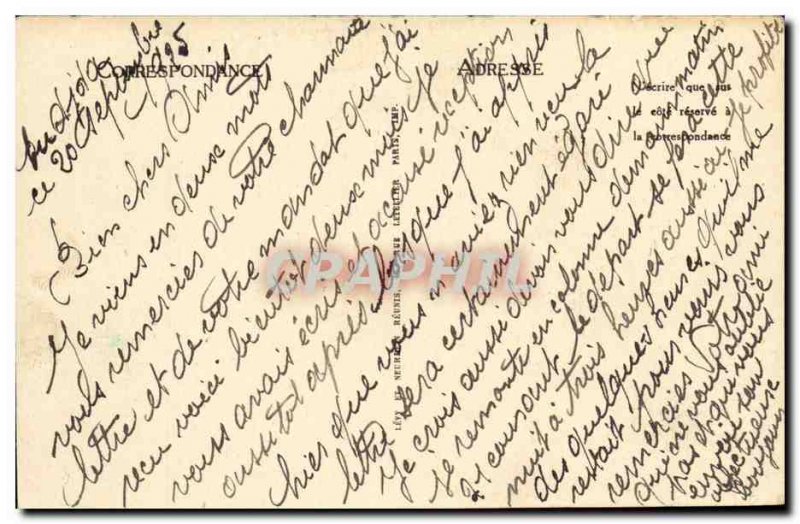 CORRESPONDANCE
ADRESSE
N'écrire que sur
le côté réservé à
la correspondance
LÉVY ET NEURDEIN RÉUNIS, LETELLIER PARIS, IMP.
CPAPHIL
ce 20 Septembre 1925
Bien chers Amis
Je viens en deux mots
vous remercier de votre charmante
lettre et de votre mandat que j'ai
reçu voici bientôt deux mois je
vous avais écris et accusé réception
aussitôt après lorsque j'ai appris
hier que vous n'aviez rien reçu la
lettre sera certainement égaré
Je crois aussi devoir vous dire que
je remonte en colonne demain matin
21 courant le départ se fera cette
nuit à trois heures aussi je profite
des quelques heures qu'il me
restait pour vous
remercier
qui ne vous oublie
pas et qui vous
envoi son
affectueux
bonjour